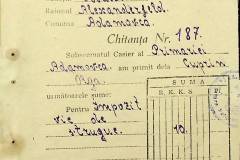 Raionul Alexanderfeld
Comuna Adamovca
Chitanța Nr. 187.
Subsemnatul Casier al Primăriei
Adamovca am primit dela Cuprin
următoarele sume:
SUMA
Pentru Impozit
vie de
strugure.
10